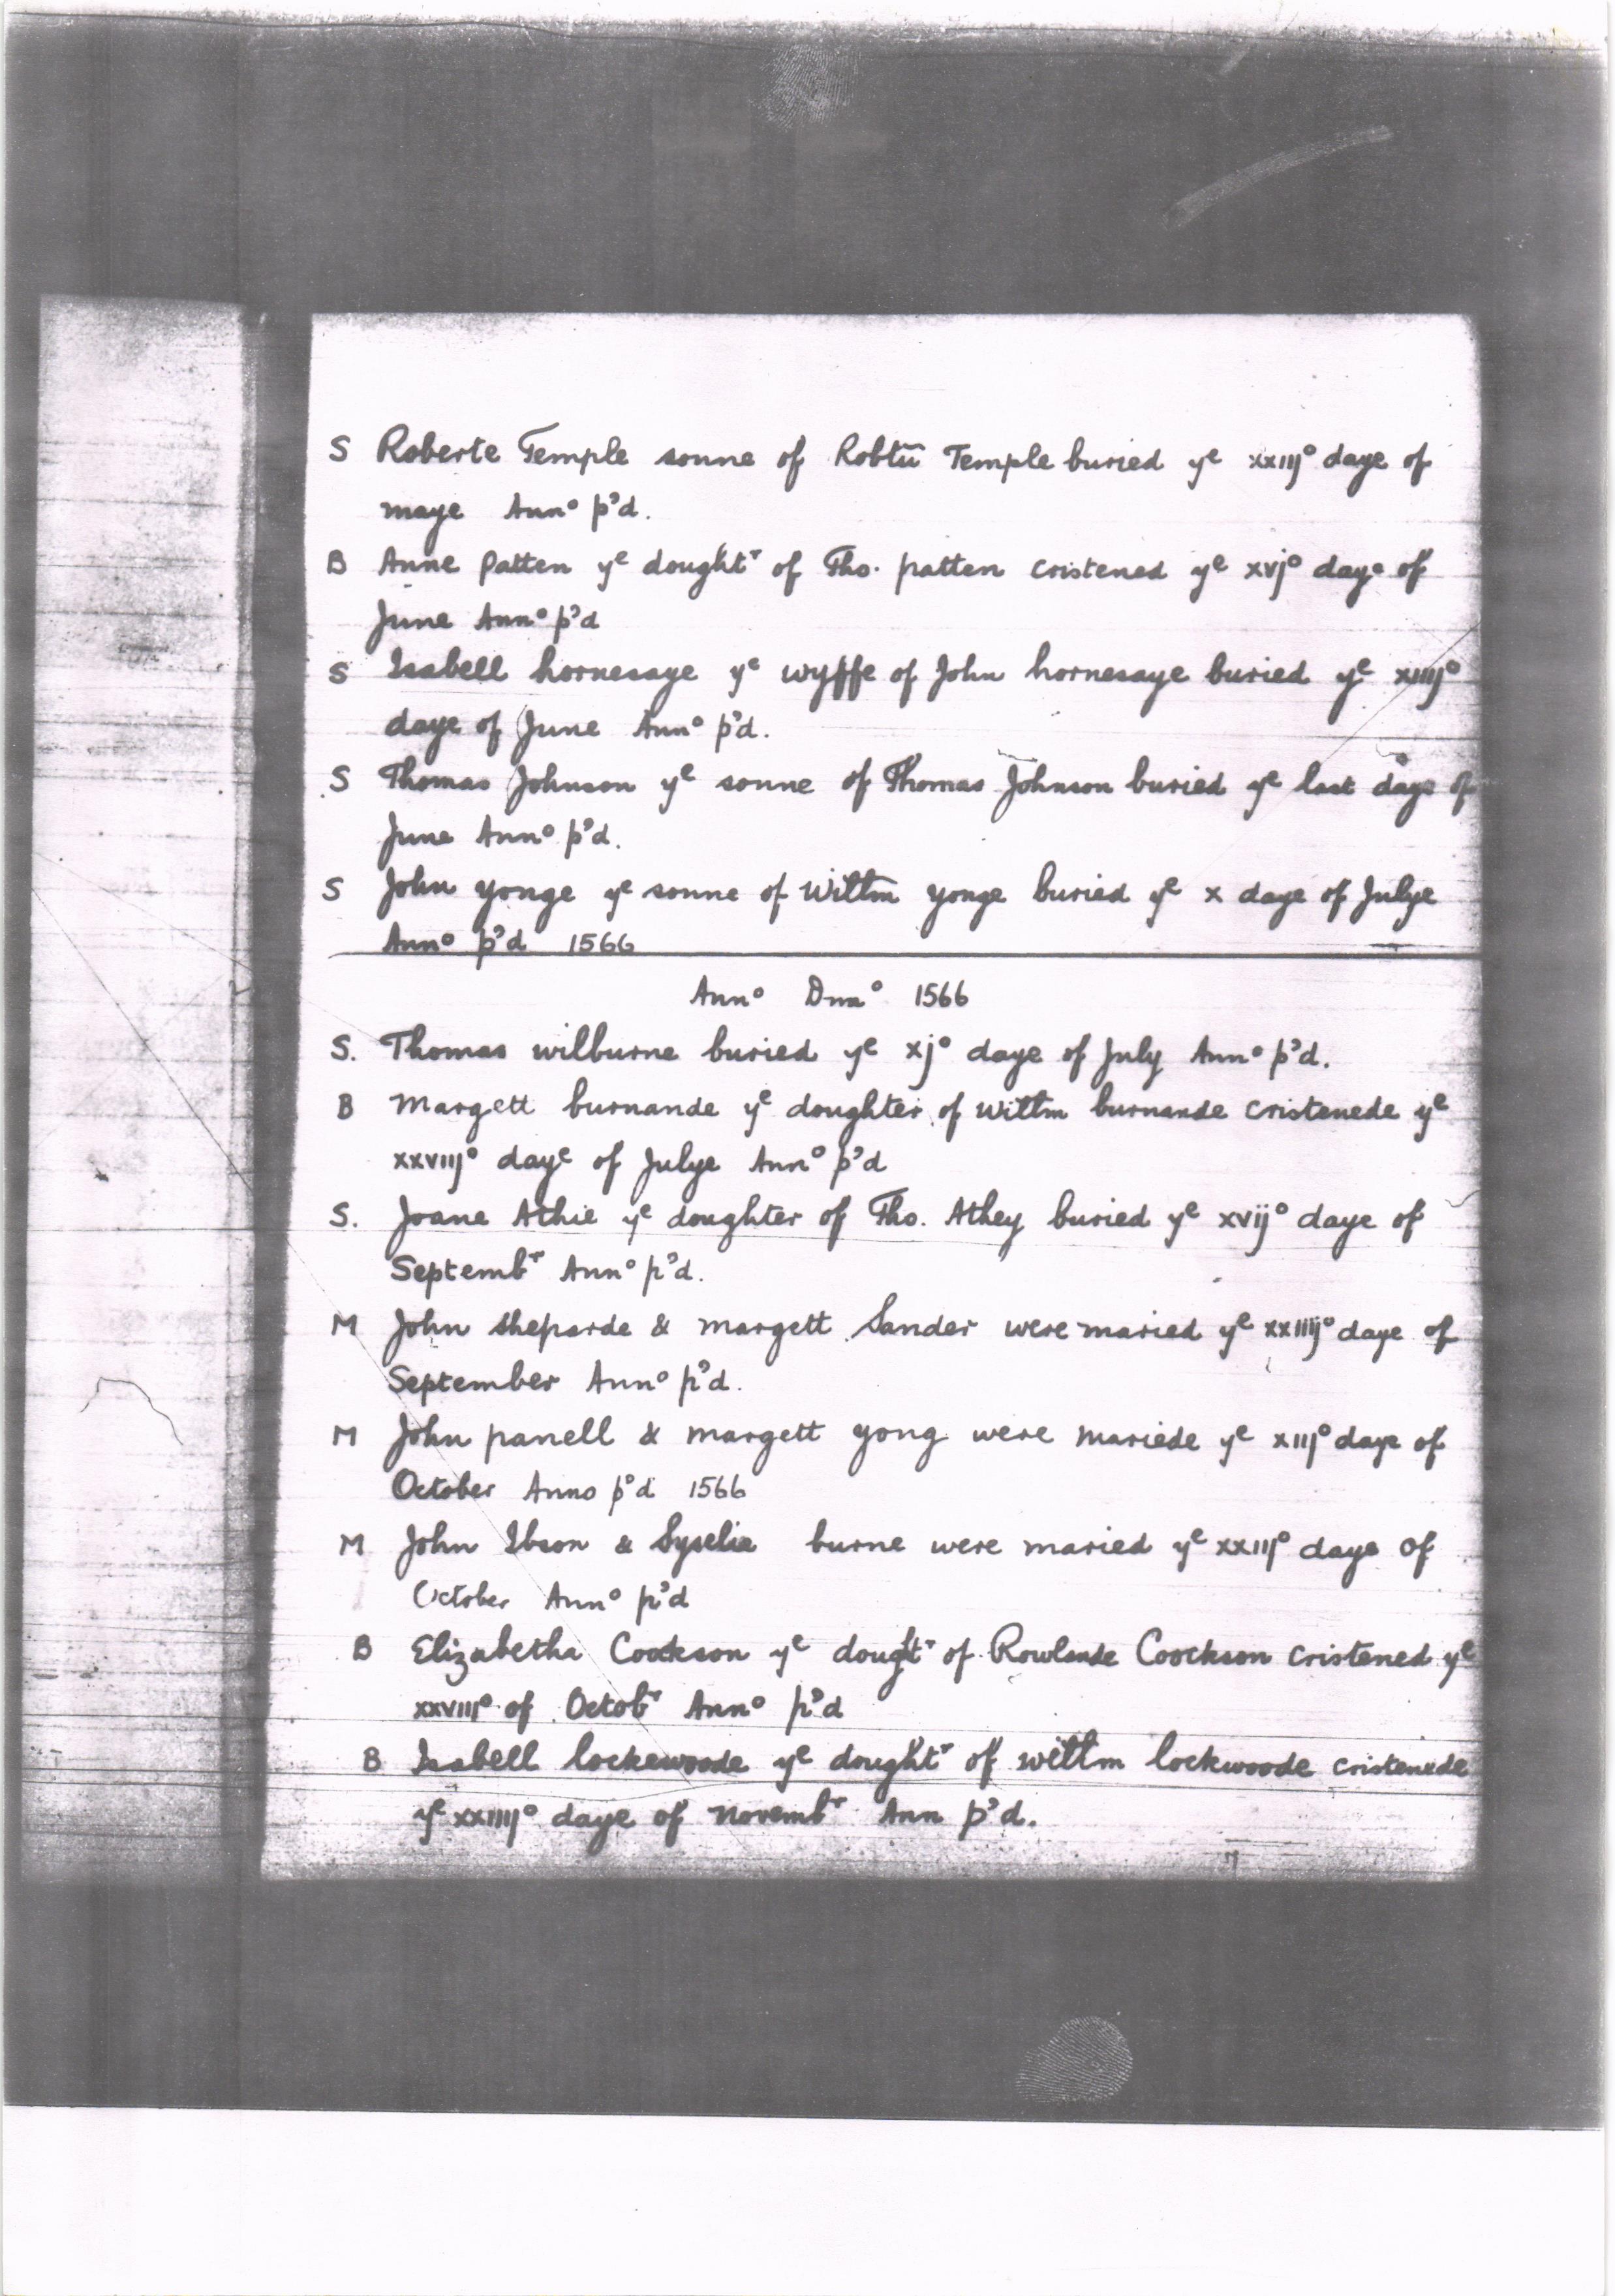 S Roberte Temple sonne of Robtū Temple buried yᵉ xxiijº daye of
maye Annº p'd.
B Anne Patten yᵉ doughtʳ of Tho. patten cristened yᵉ xvjº daye of
June Annº p'd
S Isabell hornesaye yᵉ wyffe of John hornesaye buried yᵉ xiiijº
daye of June Annº p'd.
S Thomas Johnson yᵉ sonne of Thomas Johnson buried yᵉ last daye of
June Annº p'd.
S John yonge yᵉ sonne of Willm yonge buried yᵉ x daye of Julye
Annº p'd 1566
Annº Dmº 1566
S. Thomas wilburne buried yᵉ xjº daye of July Annº p'd.
B Margett burnande yᵉ doughter of Willm burnande cristenede yᵉ
xxviijº daye of Julye Annº p'd
S. Joane Athie yᵉ doughter of Tho. Athey buried yᵉ xvijº daye of
Septembʳ Annº p'd.
M John sheparde & margett Sander were maried yᵉ xxiiijº daye of
September Annº p'd.
M John panell & margett yong were mariede yᵉ xiijº daye of
October Anno p'd 1566
M John Ibson & Syselie burne were maried yᵉ xxiijº daye of
October Annº p'd
B Elizabetha Cockson yᵉ doughtʳ of Rowlande Coockson cristened yᵉ
xxviijº of Octobʳ Annº p'd
B Isabell lockewoode yᵉ doughtʳ of willm lockwoode cristenede
yᵉ xxiiijº daye of novembʳ Ann p'd.
7